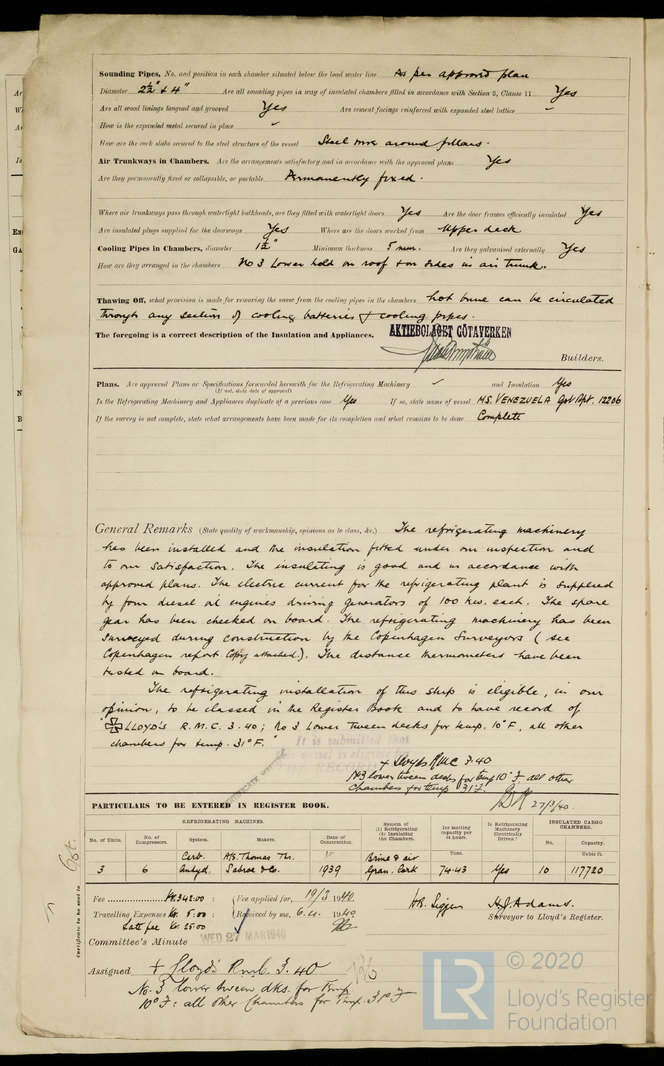 Sounding Pipes, No. and position in each chamber situated below the load water line As per approved plan
Diameter 2½" & 4" Are all sounding pipes in way of insulated chambers fitted in accordance with Section 3, Clause 11 Yes
Are all wood linings tongued and grooved Yes Are cement facings reinforced with expanded steel lattice ✓
How is the expanded metal secured in place ✓
How are the cork slabs secured to the steel structure of the vessel Steel wire around pillars.
Air Trunkways in Chambers. Are the arrangements satisfactory and in accordance with the approved plans Yes
Are they permanently fixed or collapsible, or portable Permanently fixed.
Where air trunkways pass through watertight bulkheads, are they fitted with watertight doors Yes Are the door frames efficiently insulated Yes
Are insulated plugs supplied for the doorways Yes Where are the doors worked from Upper deck
Cooling Pipes in Chambers, diameter 1½" Minimum thickness 5 mm. Are they galvanised externally Yes
How are they arranged in the chambers No 3 Lower hold on roof & on sides in air trunk.
Thawing Off, what provision is made for removing the snow from the cooling pipes in the chambers hot brine can be circulated
through any section of cooling batteries & cooling pipes.
The foregoing is a correct description of the Insulation and Appliances. AKTIEBOLAGET GÖTAVERKEN
Builders.
Plans. Are approved Plans or Specifications forwarded herewith for the Refrigerating Machinery ✓ and Insulation Yes
(If not, state date of approval)
Is the Refrigerating Machinery and Appliances duplicate of a previous case Yes If so, state name of vessel MS. VENEZUELA Got Rpt. 12206
If the survey is not complete, state what arrangements have been made for its completion and what remains to be done Complete
General Remarks (State quality of workmanship, opinions as to class, &c.) The refrigerating machinery
has been installed and the insulation fitted under our inspection and
to our satisfaction. The insulating is good and in accordance with
approved plans. The electric current for the refrigerating plant is supplied
by four diesel oil engines driving generators of 100 kw. each. The spare
gear has been checked on board. The refrigerating machinery has been
surveyed during construction by the Copenhagen Surveyors (see
Copenhagen report Copy attached). The distance thermometers have been
tested on board.
The refrigerating installation of this ship is eligible, in our
opinion, to be classed in the Register Book and to have record of
"✠ LLOYD'S R.M.C. 3.40; No 3 Lower Tween decks for temp. 10°F, all other
chambers for temp. 31°F."
It is submitted that
this vessel is eligible for
THE RECORD
+ Lloyds RMC 3.40
No 3 lower tween decks for temp 10°F all other
Chambers for temp 31°F.
27/3/40.
PARTICULARS TO BE ENTERED IN REGISTER BOOK.
REFRIGERATING MACHINES.
No. of Units. No. of Compressors. System. Makers. Date of Construction. System of (1) Refrigerating (2) Insulating the Chambers. Ice melting capacity per 24 hours. Is Refrigerating Machinery Electrically Driven? INSULATED CARGO CHAMBERS.
No. Capacity.
Tons. Cubic ft.
Carb. A/S. Thomas Ths. Brine & air
3 6 Anhyd. Sabroe & Co. 1939 Gran. Cork 74.43 Yes 10 117720
Fee Kr. 342.00 : Fee applied for, 19/3 1940.
Travelling Expenses Kr. 5.00 : Received by me, 6.4. 1940
Late fee Kr. 25.00
H.J. Adams.
Surveyor to Lloyd's Register.
WED 27 MAR 1940
Committee's Minute
Assigned + Lloyd's R.M.C. 3.40
No. 3 lower tween dks. for Temp.
10°F: all other Chambers for Temp. 31°F
Certificate to be sent to Got.
© 2020
LR Lloyd's Register
Foundation